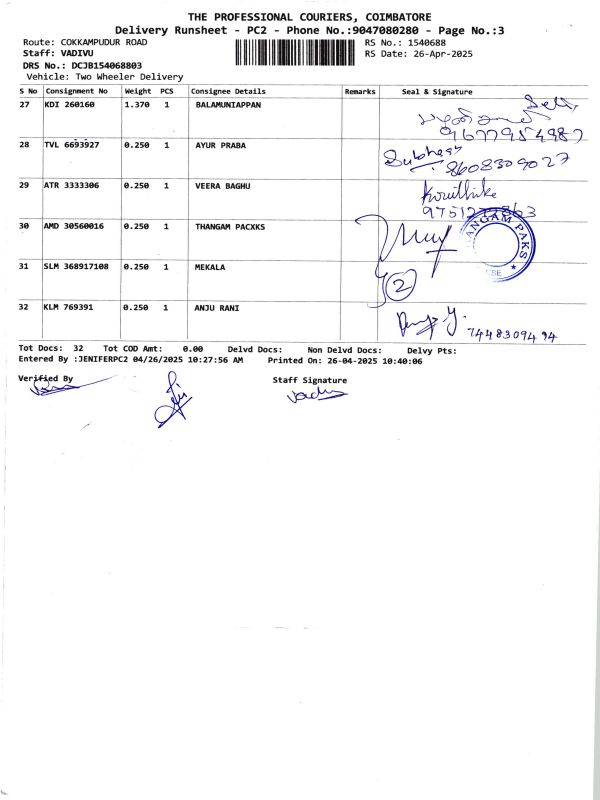 THE PROFESSIONAL COURIERS, COIMBATORE
Delivery Runsheet - PC2 - Phone No.:9047080280 - Page No.:3
Route: COKKAMPUDUR ROAD RS No.: 1540688
Staff: VADIVU RS Date: 26-Apr-2025
DRS No.: DCJB154068803
Vehicle: Two Wheeler Delivery
S No Consignment No Weight PCS Consignee Details Remarks Seal & Signature
27 KDI 260160 1.370 1 BALAMUNIAPPAN
9677954987
28 TVL 6693927 0.250 1 AYUR PRABA
Subhash 8608309027
29 ATR 3333306 0.250 1 VEERA BAGHU
30 AMD 30560016 0.250 1 THANGAM PACXKS
ANGAM PAKS
31 SLM 368917108 0.250 1 MEKALA
2
32 KLM 769391 0.250 1 ANJU RANI
7448309494
Tot Docs: 32 Tot COD Amt: 0.00 Delvd Docs: Non Delvd Docs: Delvy Pts:
Entered By :JENIFERPC2 04/26/2025 10:27:56 AM Printed On: 26-04-2025 10:40:06
Verified By Staff Signature